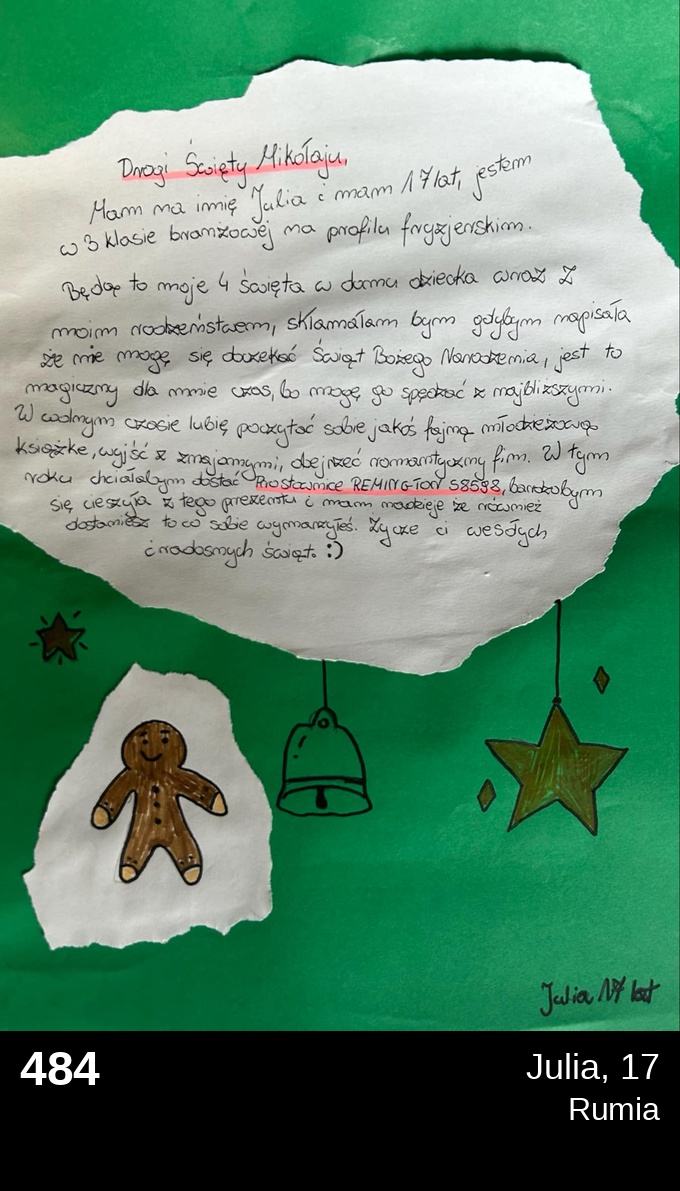 Drogi Święty Mikołaju,
Mam na imię Julia i mam 17 lat, jestem
w 3 klasie branżowej na profilu fryzjerskim.
Będąe to moje 4 święta w domu dziecka wraz z
moim rodzeństwem, skłamałam bym gdybym napisała
że nie mogę się doczekać Świąt Bożego Narodzenia, jest to
magiczny dla mnie czas, bo mogę go spędzać z najbliższymi.
W wolnym czasie lubię poczytać sobie jakoś fajną młodzieżową
książkę, wyjść z znajomymi, obejrzeć romantyczny film. W tym
roku chciałabym dostać Prostownice REMINGTON S8598, bardzobym
się cieszyła z tego prezentu i mam nadzieje że również
dostaniesz to co sobie wymarzyłeś. Życze ci wesołych
i radosnych świąt. :)
Julia 17 lat
484
Julia, 17
Rumia